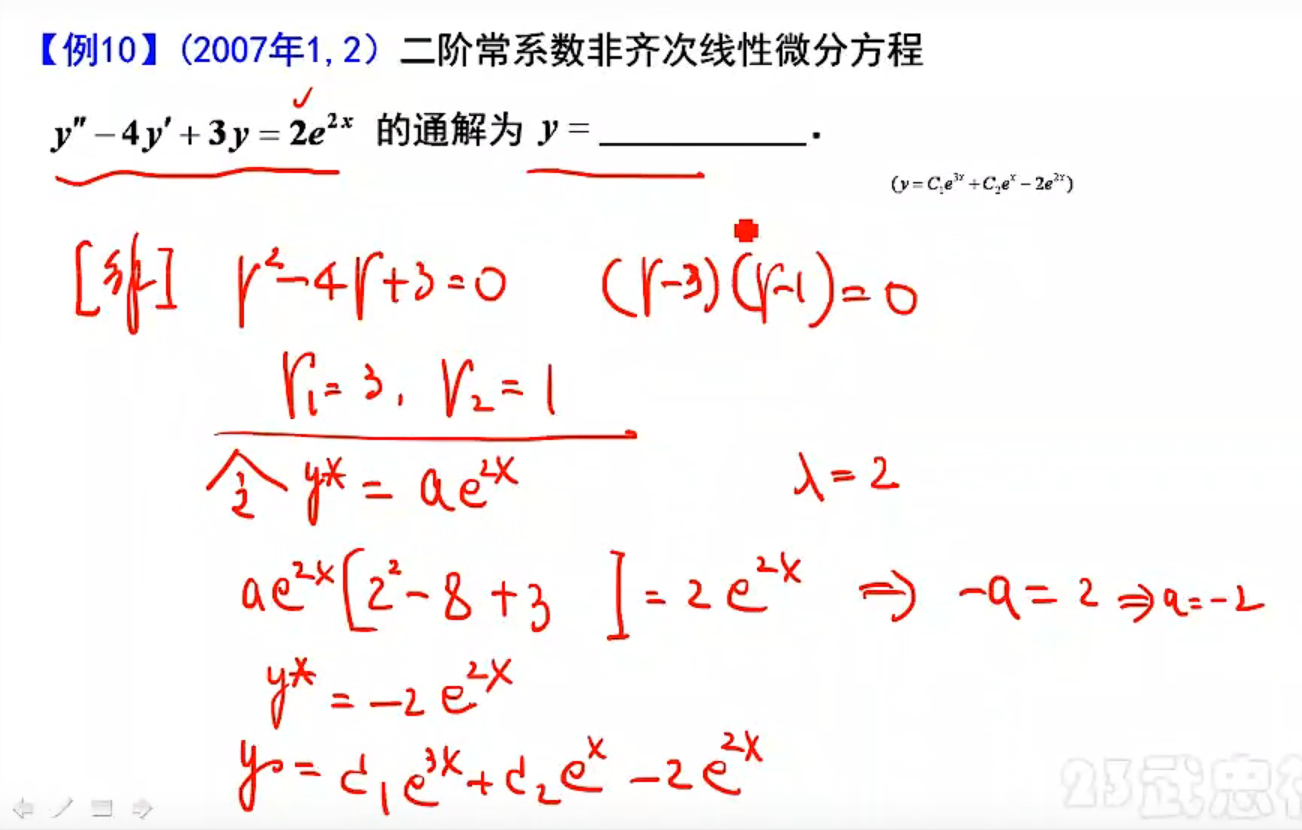 【例10】(2007年1,2) 二阶常系数非齐次线性微分方程
y″－4y′＋3y＝2e^{2x} 的通解为 y＝__________．
(y＝C₁e^{3x}＋C₂e^{x}－2e^{2x})
[解] r²－4r+3=0 (r－3)(r－1)=0
r₁=3, r₂=1
令 y*=ae^{2x} λ=2
ae^{2x}[2²－8+3 ]=2e^{2x} ⇒ －a=2 ⇒ a=－2
y*=－2e^{2x}
y=C₁e^{3x}+C₂e^{x}－2e^{2x}
23武忠